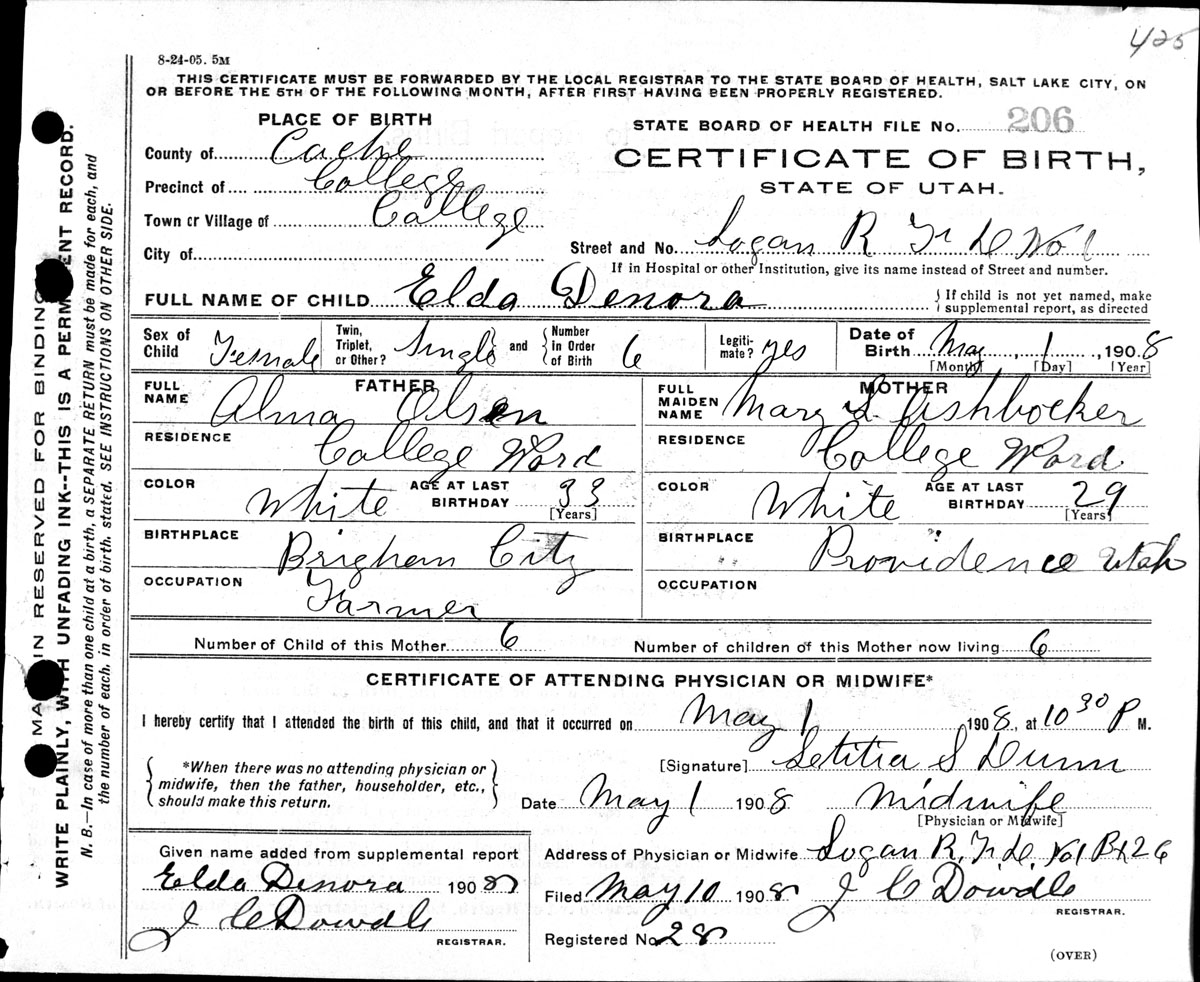 425
8-24-05. 5M
THIS CERTIFICATE MUST BE FORWARDED BY THE LOCAL REGISTRAR TO THE STATE BOARD OF HEALTH, SALT LAKE CITY, ON
OR BEFORE THE 5TH OF THE FOLLOWING MONTH, AFTER FIRST HAVING BEEN PROPERLY REGISTERED.
PLACE OF BIRTH
County of Cache
Precinct of College
Town or Village of College
City of
STATE BOARD OF HEALTH FILE No. 206
CERTIFICATE OF BIRTH,
STATE OF UTAH.
Street and No. Logan R Fr D No 1
If in Hospital or other Institution, give its name instead of Street and number.
FULL NAME OF CHILD Elda Denora
If child is not yet named, make
supplemental report, as directed
Sex of Child Female Twin, Triplet, or Other? Single and Number in Order of Birth 6 Legiti-mate? yes Date of Birth May, 1, 1908
[Month] [Day] [Year]
FATHER
FULL NAME Alma Olsen
RESIDENCE College Ward
COLOR White AGE AT LAST BIRTHDAY 33
[Years]
BIRTHPLACE Brigham City
OCCUPATION Farmer
MOTHER
FULL MAIDEN NAME Mary L. Fishbocker
RESIDENCE College Ward
COLOR White AGE AT LAST BIRTHDAY 29
[Years]
BIRTHPLACE Providence Utah
OCCUPATION
Number of Child of this Mother 6 Number of children of this Mother now living 6
CERTIFICATE OF ATTENDING PHYSICIAN OR MIDWIFE*
I hereby certify that I attended the birth of this child, and that it occurred on May 1 1908, at 10 30 P M.
*When there was no attending physician or
midwife, then the father, householder, etc.,
should make this return.
[Signature] Letitia S Dunn
Date May 1 1908 Midwife
[Physician or Midwife]
Given name added from supplemental report
Elda Denora 1908
J C Dowdle
REGISTRAR.
Address of Physician or Midwife Logan R. Fr D. No 1 Bx 26
Filed May 10 1908 J C Dowdle
REGISTRAR.
Registered No. 28
(OVER)
MARGIN RESERVED FOR BINDING
WRITE PLAINLY, WITH UNFADING INK--THIS IS A PERMANENT RECORD.
N. B.—In case of more than one child at a birth, a SEPARATE RETURN must be made for each, and
the number of each, in order of birth, stated. SEE INSTRUCTIONS ON OTHER SIDE.